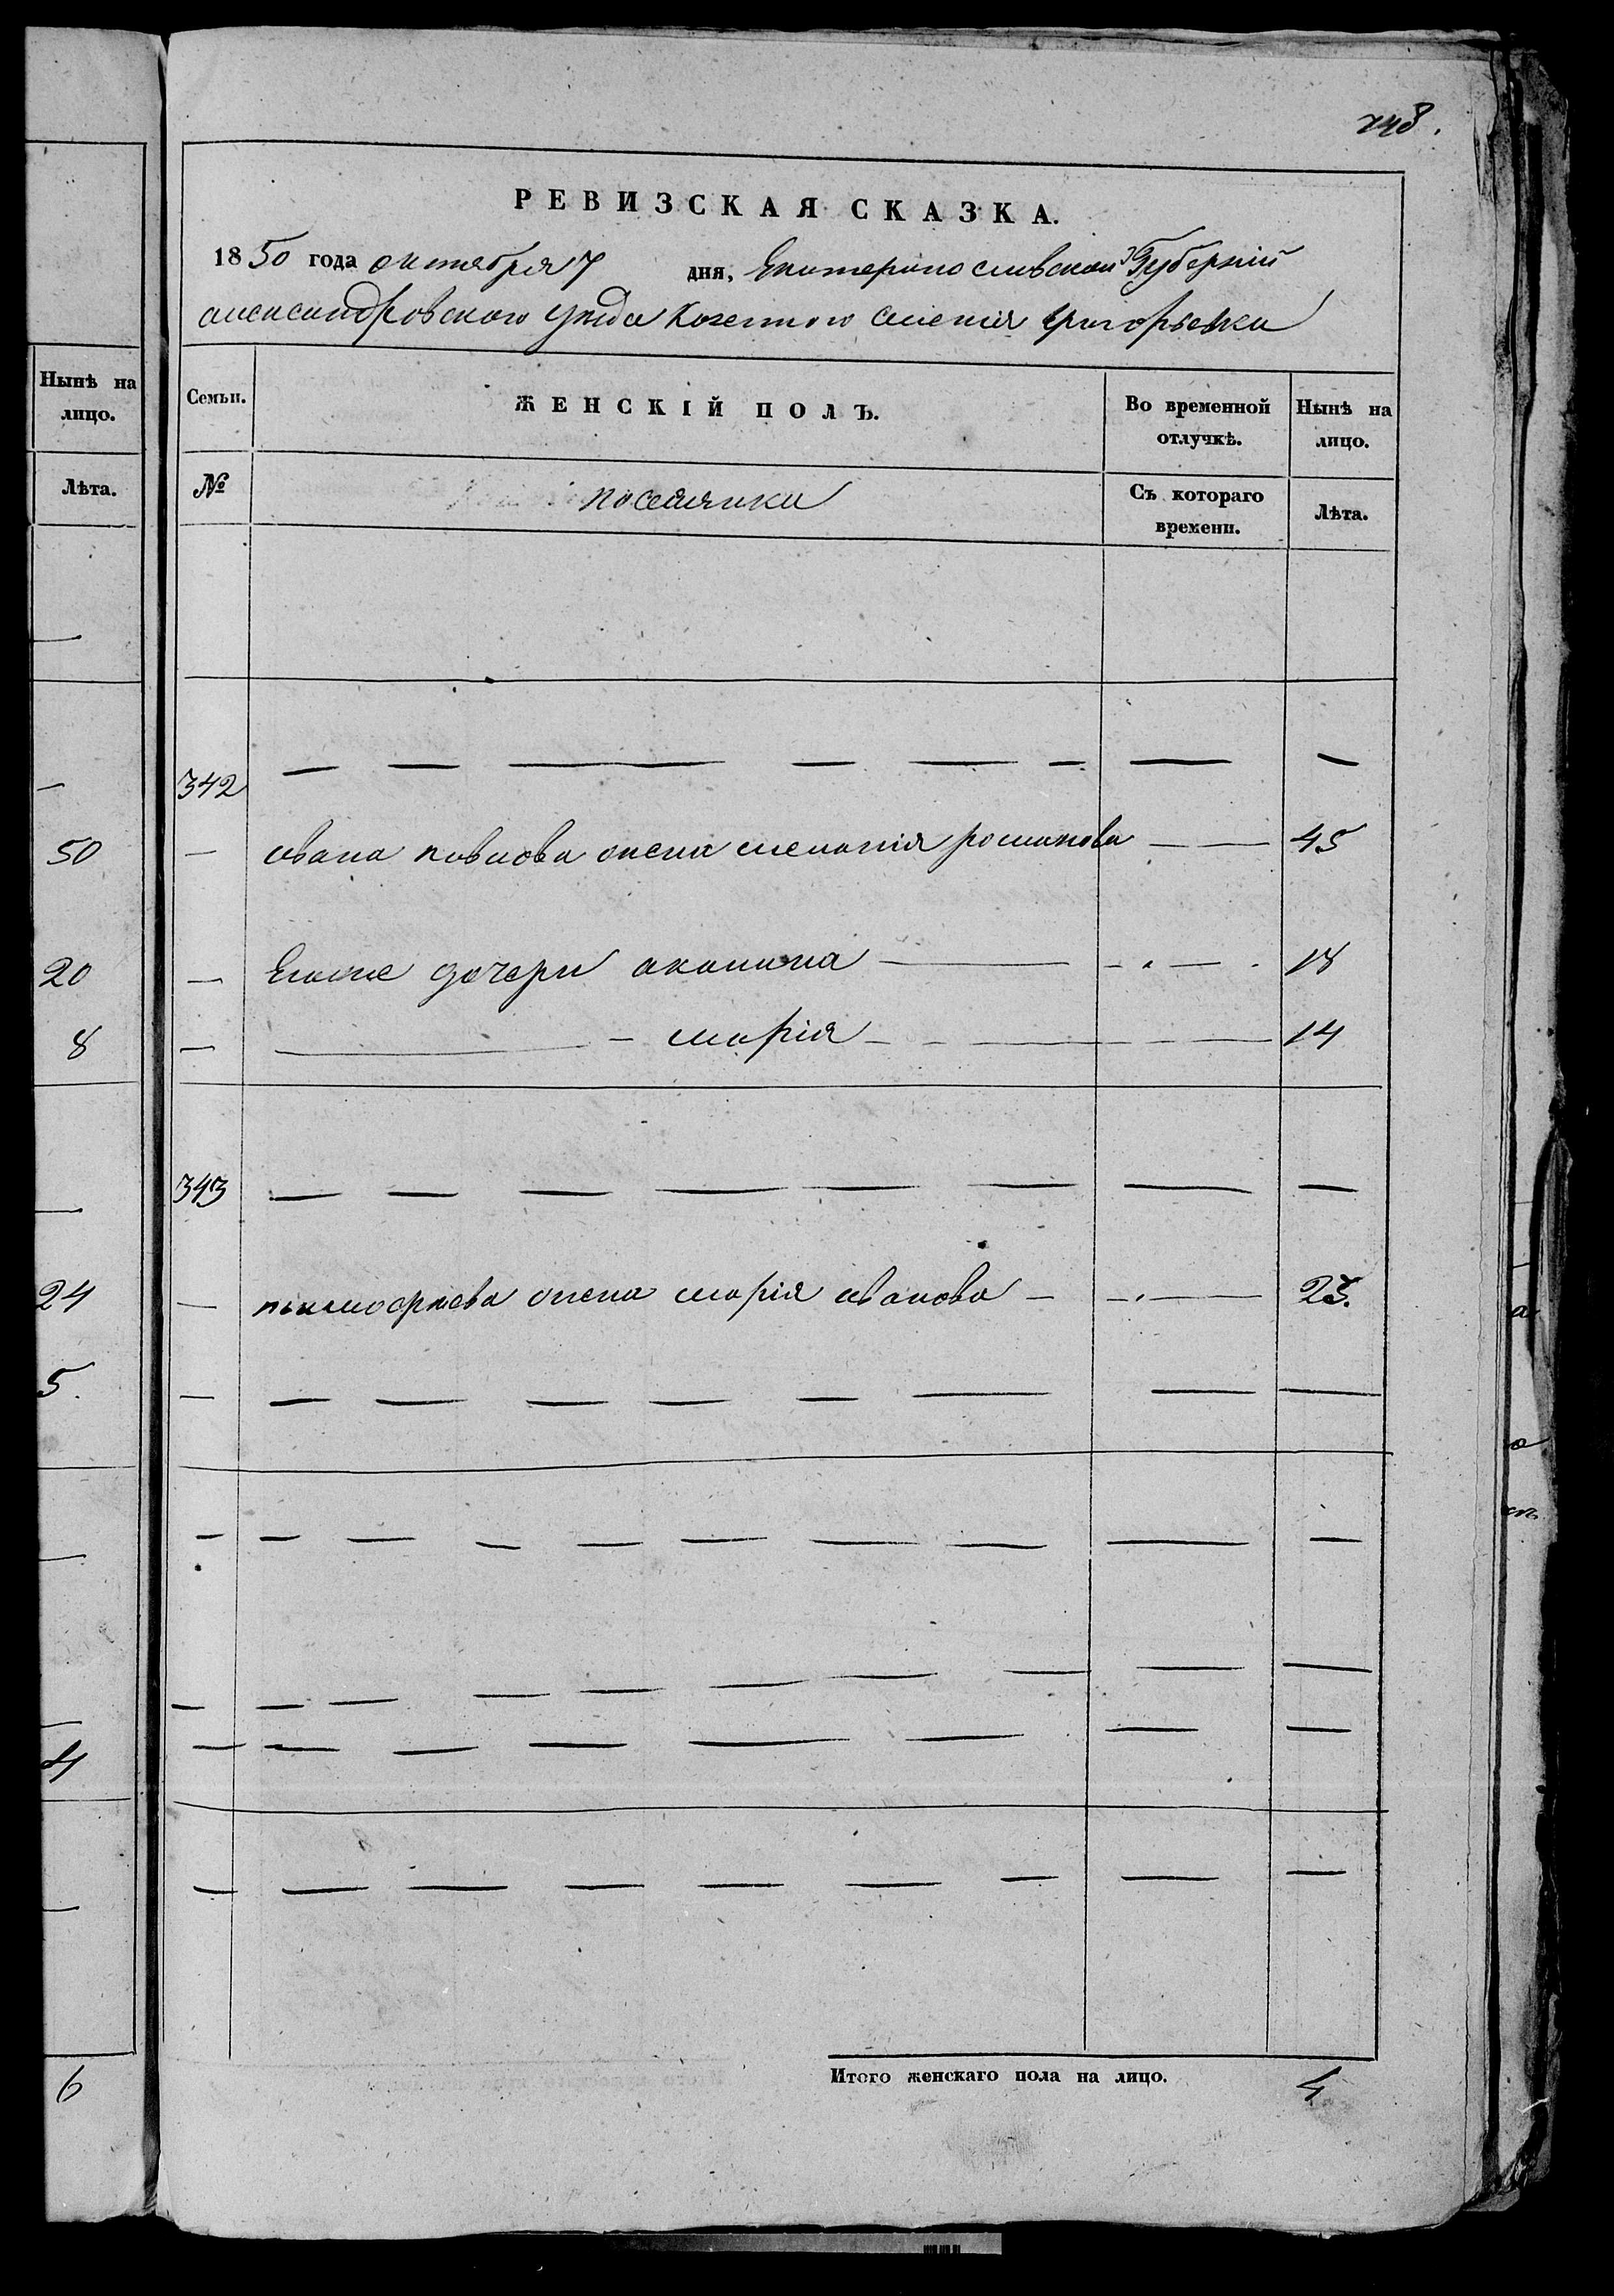 748.
Нынѣ на
лицо.
Лѣта.
50
20
8
24
5.
4
6
РЕВИЗСКАЯ СКАЗКА.
1850 года октября 7 дня, Екатеринославской Губерніи
александровского уезда Козенного селенія григорьевки
Семьи. ЖЕНСКІЙ ПОЛЪ. Во временной отлучкѣ. Нынѣ на лицо.
№ поселянки Съ котораго времени. Лѣта.
342
ивана павлова жена меланія романова 45
Егоже дочери акилина 18
марія 14
343
жена марія иванова 23.
Итого женскаго пола на лицо. 4